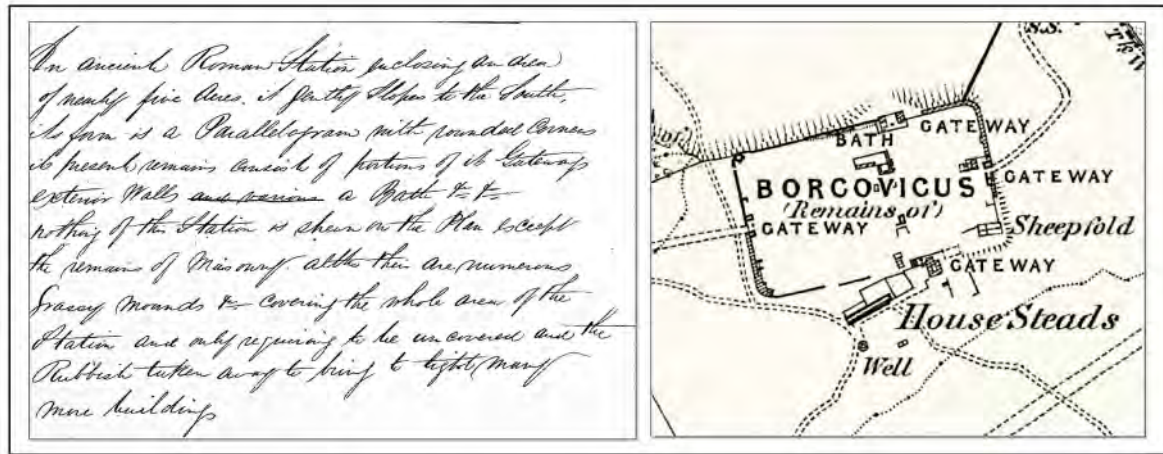 An ancient Roman Station enclosing an area
of nearly five Acres. it gently Slopes to the South,
its form is a Parallelogram with rounded Corners
its present remains consist of portions of its Gateways
exterior Walls and various a Bath &c &c
nothing of this Station is shewn on the Plan except
the remains of Masonry. altho their are numerous
Grassy mounds &c covering the whole area of the
Station and only requiring to be uncovered and the
Rubbish taken away to bring to light many
more buildings
S.S.
GATEWAY
BATH
BORCOVICUS
(Remains of)
GATEWAY
GATEWAY
Sheepfold
GATEWAY
House Steads
Well